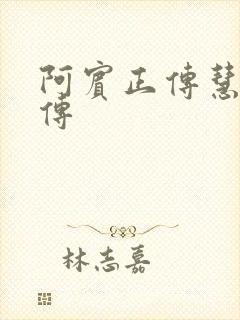 阿賓正傳慧
傳
林志嘉